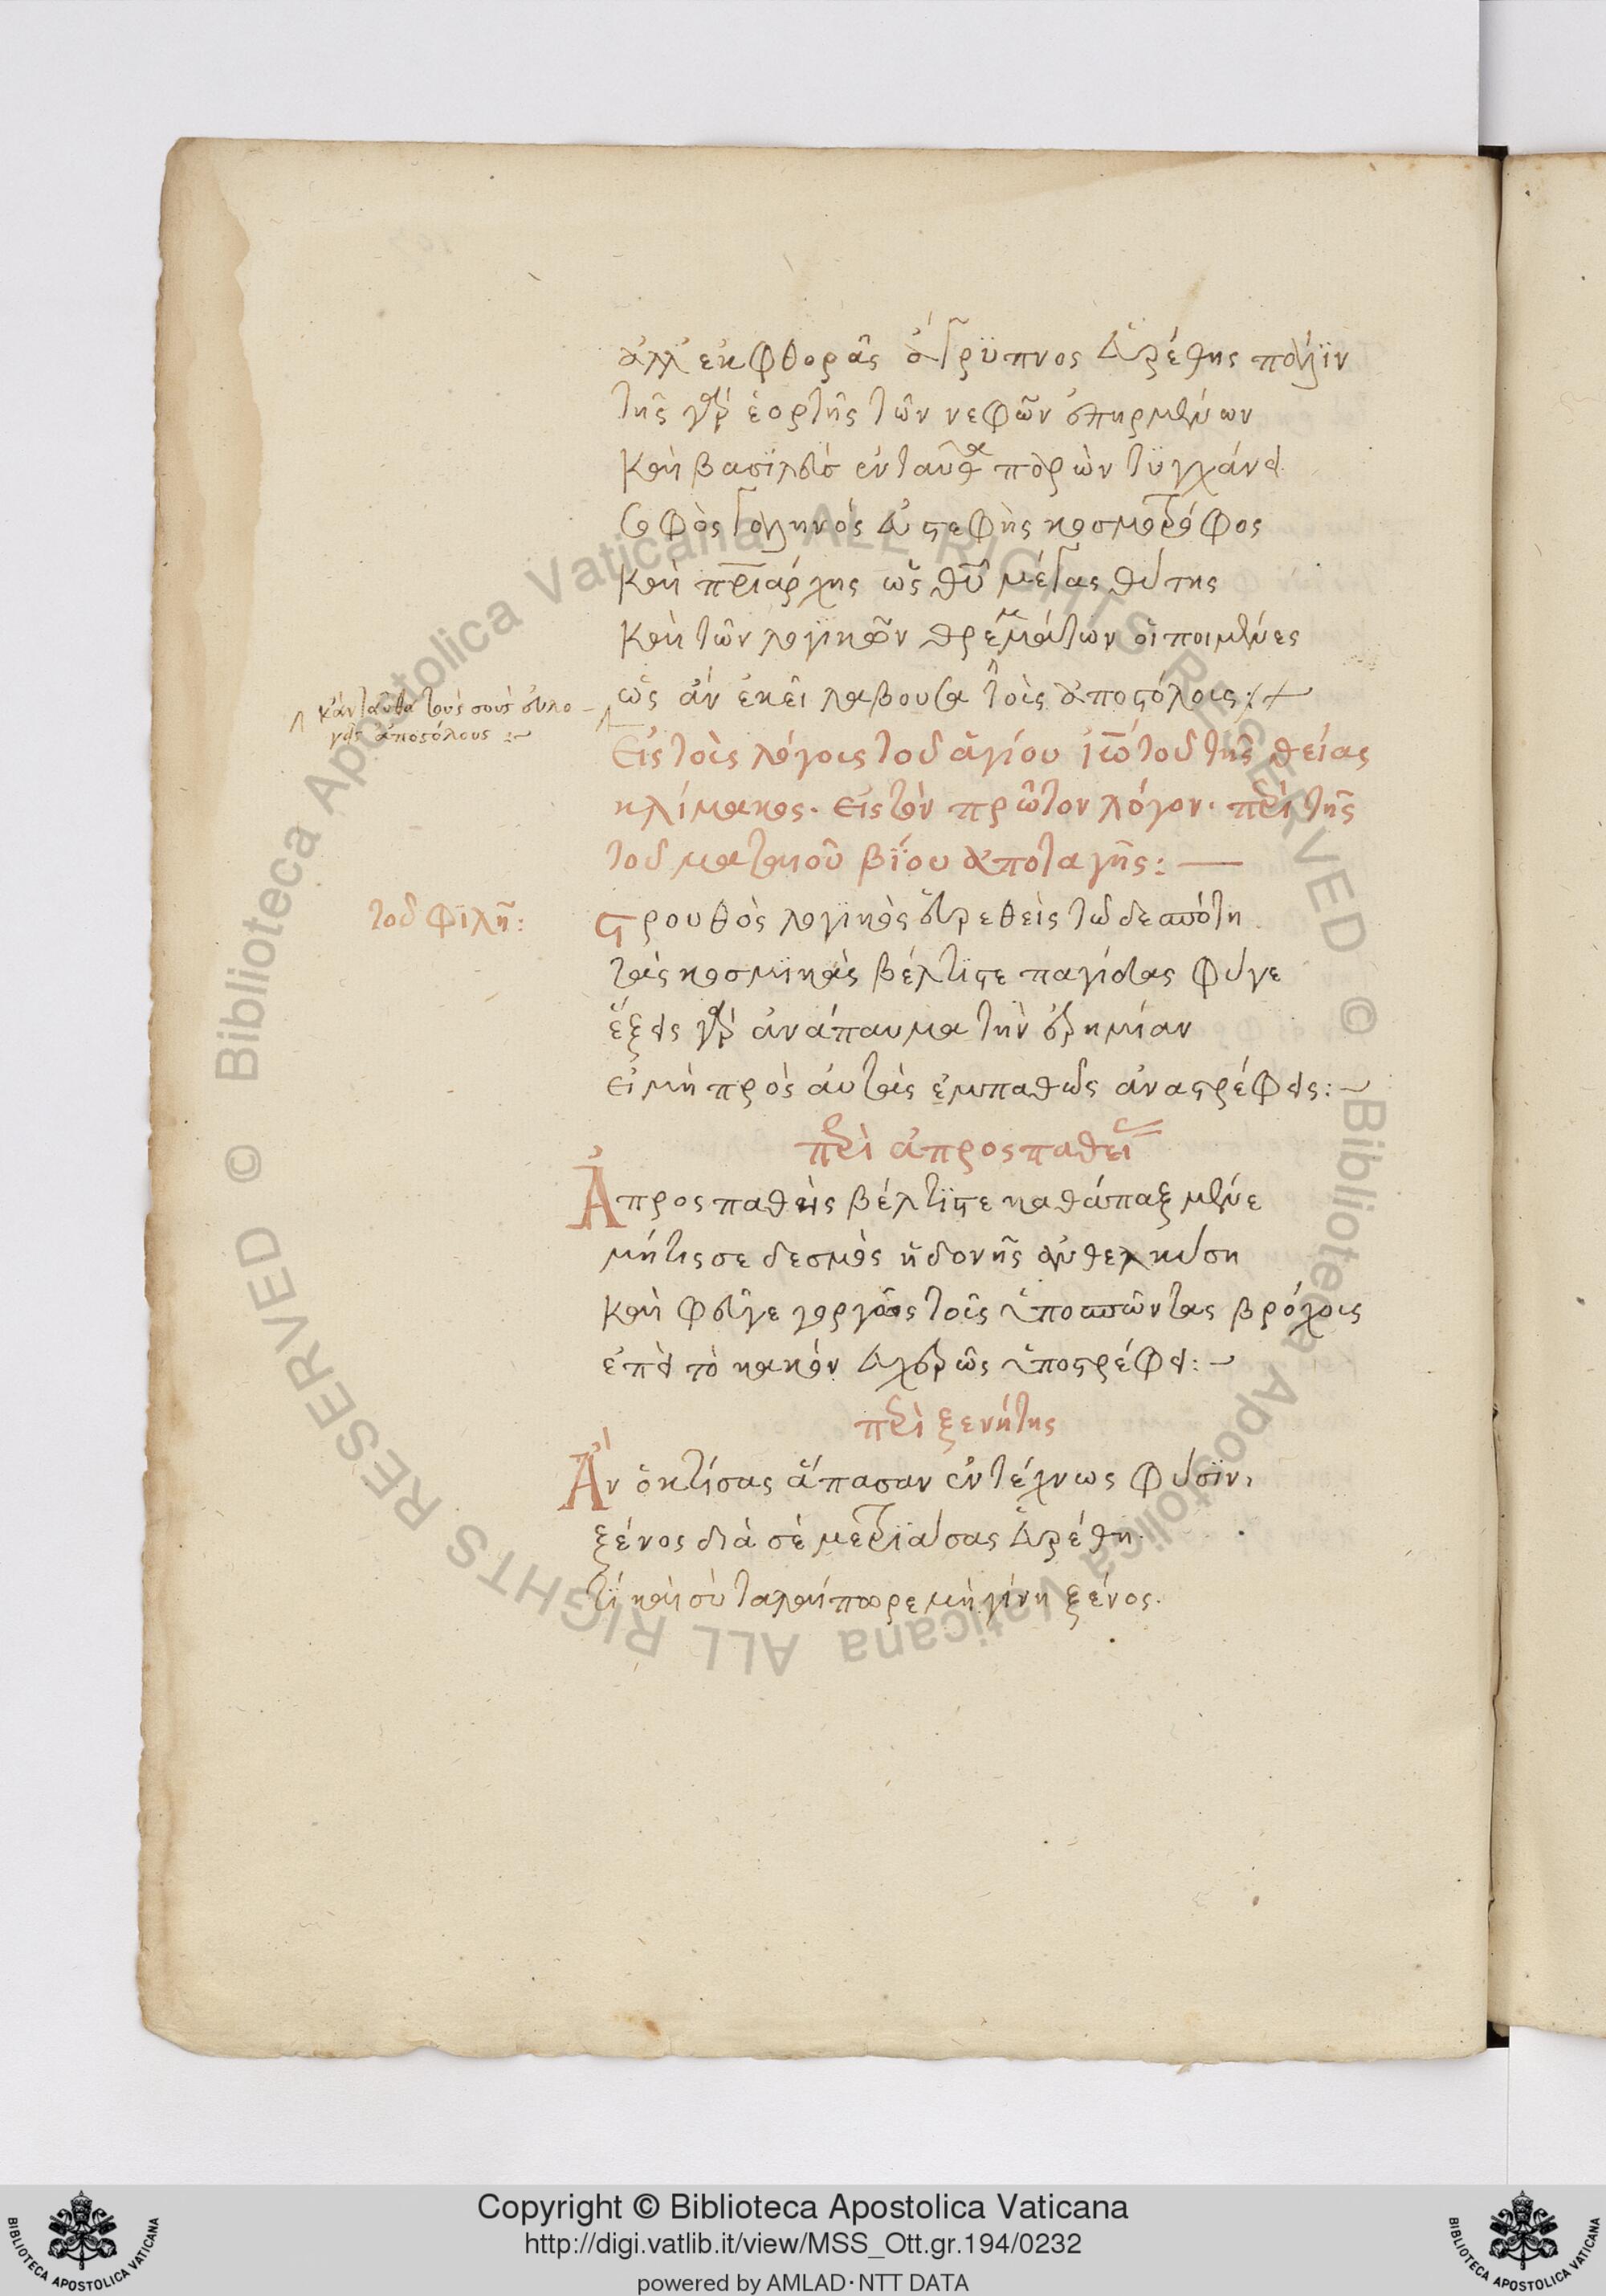 ἀλλ' ἐκ φθορᾶς ἄγρϋπνος εὑρέθης πάλϊν
τῆς γὰρ ἑορτῆς τῶν νεφῶν ἐπηρμένων
Καὶ βασϊλεὺς ἐνταῦθα παρὼν τϋγχάνει
σοφὸς γαληνὸς εὐστεφὴς κοσμοτρόφος
Καὶ πριάρχης ὡς θῦ μέγας θύτης
Καὶ τῶν λογικῶν θρεμμάτων οἱ ποιμένες
ὡς ἂν ἐκεῖ λαβοῦσα τοῖς ἀποστόλοις:
κἀνταῦθα τοὺς σοὺς συλλο
γῆς ἀποστόλους:~
Εἰς τοὺς λόγους τοῦ ἁγίου ἰω τοῦ τῆς θείας
κλίμακος. εἰς τὸν πρῶτον λόγον. περὶ τῆς
τοῦ ματαιοῦ βϊου ἀποταγῆς:
τοῦ Φϊλῆ:
στρουθὸς λογϊκὸς εὑρεθεὶς τῶ δεσπότη
τὰς κοσμϊκὰς βέλτϊστε παγίδας φύγε
ἕξεις γὰρ ἀνάπαυμα τὴν ἐρημίαν
εἰ μὴ πρὸς αὐτὰς ἐμπαθῶς ἀναστρέφεις:~
περὶ ἀπροσπαθείας
Ἀπροσπαθὴς βέλτϊστε καθάπαξ μένε
μήτις σε δεσμὸς ἡδονῆς ἀνθελκύση
Καὶ φεῦγε γοργῶς τοὺς ὑποσπῶντας βρόχους
ἐπεὶ τὸ κακὸν εὐχερῶς ὑποστρέφει:~
περὶ ξενήτης
Ἂν ὁ κτίσας ἅπασαν ἐντέχνως φύσϊν,
ξένος διὰ σὲ μετρϊάσας εὑρέθη.
τί καὶ σὺ ταλαίπωρε μὴ γίνη ξένος.
Copyright © Biblioteca Apostolica Vaticana
http://digi.vatlib.it/view/MSS_Ott.gr.194/0232
powered by AMLAD·NTT DATA
BIBLIOTECA APOSTOLICA VATICANA
BIBLIOTECA APOSTOLICA VATICANA
© Biblioteca Apostolica Vaticana ALL RIGHTS RESERVED © Biblioteca Apostolica Vaticana ALL RIGHTS RESERVED